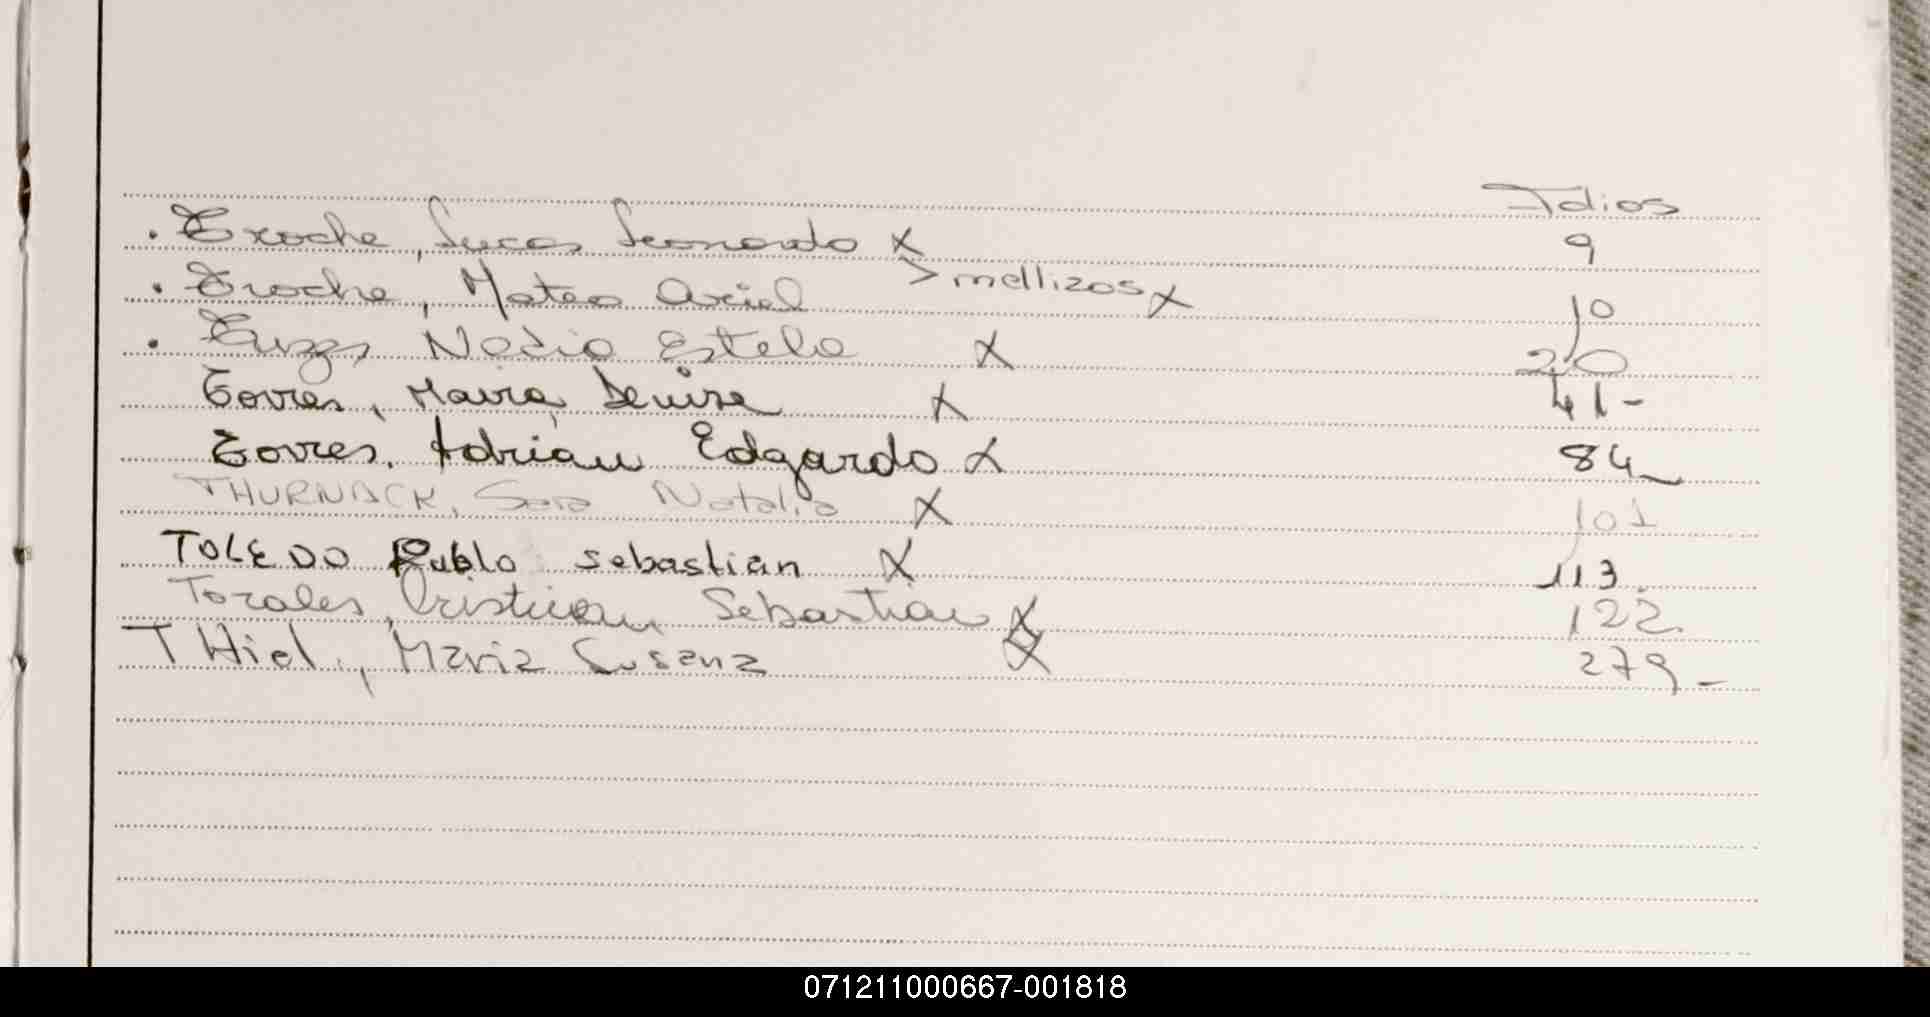 Folios
. Troche, Lucas Leonardo X 9
> mellizos X
. Troche, Mateo Ariel 10
. Nadia Estela X 20
Torres, Maira Denise X 41-
Torres, Adrian Edgardo X 84_
THURNACK, Sara Natalia X 101
TOLEDO Pablo Sebastián X 113
Torales, Cristian Sebastian X 122
THiel, Maria Susana X 279_
071211000667-001818